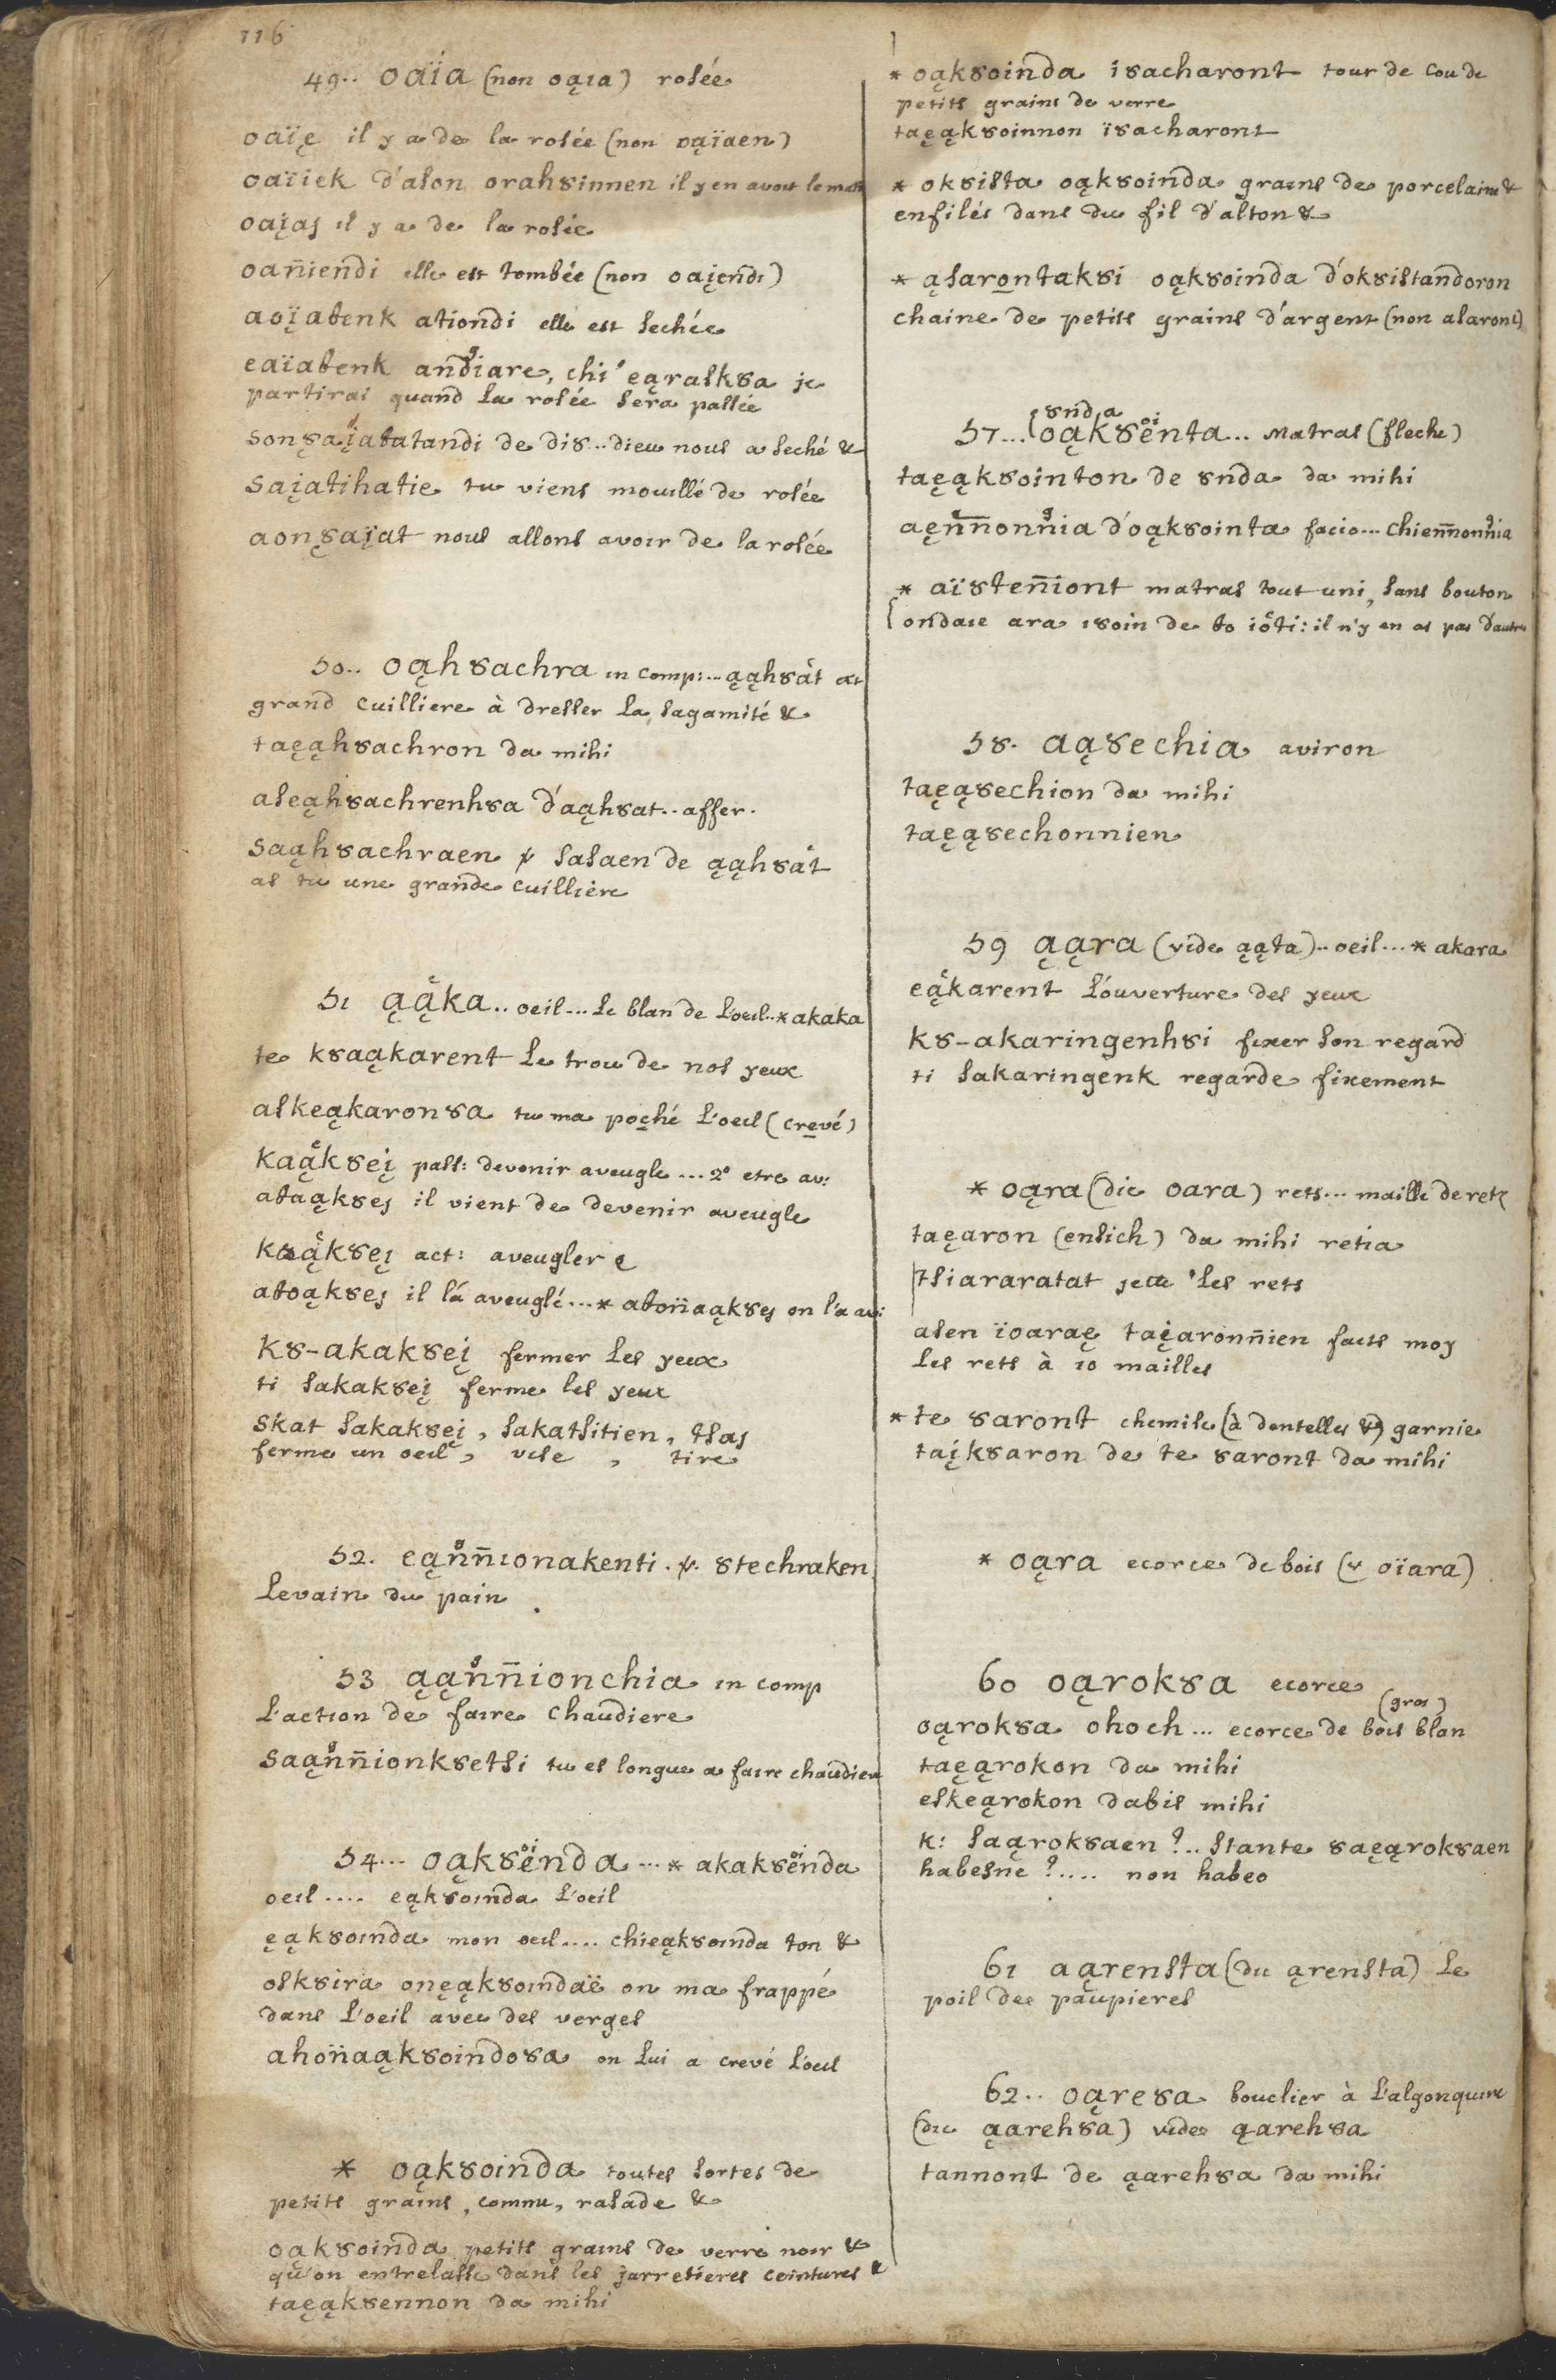 116
49.. oaïa (non oąıa) rosée
oaïę il y a de la rosée (non oąïaen)
oaïiek d'ason orahȣinnen il y en avoit le matin
oaįas il y a de la rosée
oan̄iend̄i elle est tombée (non oaįend̄i)
aoįatenk ationdi elle est sechée
eaïatenk and̄iare, chi eąrasksa je
partirai quand la rosée sera passée
sonȣaįatatandi de diȣ.. dieu nous a seché &
saįatihatie tu viens mouillé de rosée
aonȣaįat nous allons avoir de la rosée
50.. oąhȣachra in comp:... ąąhȣat
grand cuilliere à dresser la sagamité &
taęąhȣachron da mihi
aseąhȣachrenhȣa d'aąhȣat.. affer.
saąhȣachraen v sasaen de ąąhȣat
as tu une grande cuilliere
51 ąąka.. oeil... le blan de l'oeil..* akaka
te kȣaąkarent le trou de nos yeux
askeąkaronȣa tu ma poché l'oeil (crevé)
kaąkȣeį pass: devenir aveugle ... 2° etre av:
ataąkȣeį il vient de devenir aveugle
kȣąkȣeį act: aveugler
atoąkȣeį il l'a aveuglé...* aton̈aąkȣeį on l'a av:
kȣ-akakȣeį fermer les yeux
ti sakakȣeį ferme les yeux
skat sakakȣeį, sakatsitien, tsas
ferme un oeil, vise, tire
52. eąn̄n̄ionakenti. v. ȣtechraken
levain du pain
53 ąąn̄n̄ionchia in comp
l'action de faire chaudiere
saąn̄n̄ionkȣetsi tu es longue a faire chaudiere
54... oąkȣend̄a...* akakȣend̄a
oeil.... eąkȣoind̄a l'oeil
ęąkȣoind̄a mon oeil.... chieąkȣoind̄a ton &
oskȣira onęąkȣoind̄aë on ma frappé
dans l'oeil avec des verges
ahon̈aąkȣoindoȣa on lui a crevé l'oeil
* oąkȣoind̄a toutes sortes de
petits grains, comme, rasade &
oąkȣoind̄a petits grains de verre noir &
qu'on entrelasse dans les jarretieres ceintures &
taęąkȣennon da mihi
* oąkȣoind̄a iȣacharont tour de cou de
petits grains de verre
taęąkȣoinnon ïȣacharont
* okȣista oąkȣoind̄a grains de porcelaine &
enfilés dans du fil d'alton &
* ąsarontakȣi oąkȣoind̄a d'okȣistand̄oron
chaine de petits grains d'argent (non asaront)
57... oąkȣenta... matras (fleche)
ȣnda
taęąkȣointon de ȣnda da mihi
aęn̄n̄onn̄ia d'oąkȣointa facio... chien̄n̄onn̄ia
* aïȣten̄iont matras tout uni, sans bouton
ond̄aie ara ıȣoin de to ioti: il n'y en as pas d'autre
58. aąȣechia aviron
taęąȣechion da mihi
taęąȣechonnien
59 ąąra (vide ąąta).. oeil...* akara
eąkarent l'ouverture des yeux
kȣ-akaringenhȣi fixer son regard
ti sakaringenk regarde fixement
* oąra (dic oara) rets... maille de rets
taęaron (ensich) da mihi retia
tsiararatat jette les rets
asen ïoaraę taįaronn̄ien faits moy
les rets à 10 mailles
* te ȣaront chemise (à dentelles &) garnie
taįkȣaron de te ȣaront da mihi
* oąra ecorce de bois (v oïara)
60 oąrokȣa ecorce
(gros)
oąrokȣa ohoch... ecorce de bois blan
taęąrokon da mihi
eskeąrokon dabis mihi
k: saąrokȣaen?.. stante ȣaęąrokȣaen
habesne?.... non habeo
61 aąrensta (dic ąrensta) le
poil des paupieres
62.. oąreȣa bouclier à l'algonquine
(dic ąarehȣa) vide ąarehȣa
tannont de ąarehȣa da mihi